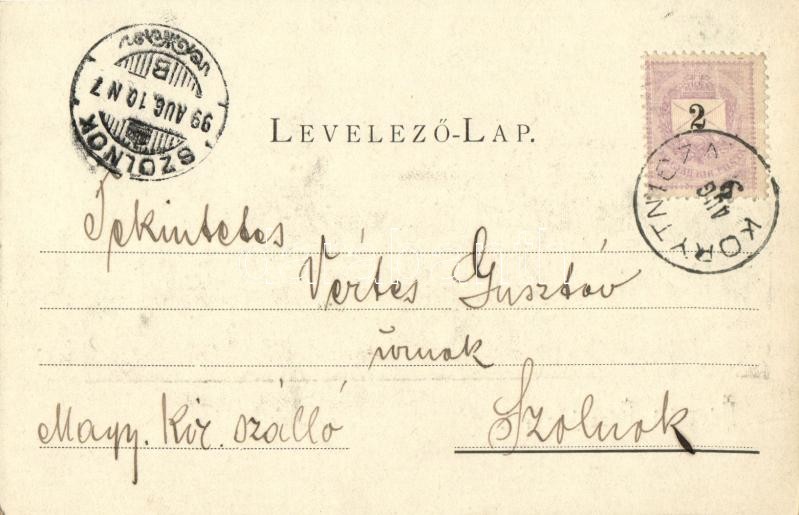 SZOLNOK
99 AUG. 10. N 7
B
LEVELEZŐ-LAP.
2
KORYTNICZA
AUG
Tekintetes
Vértes Gusztáv
úrnak
Magy. Kir. szálló
Szolnok